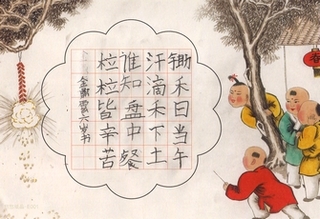 锄禾日当午
汗滴禾下土
谁知盘中餐
粒粒皆辛苦
六岁书
春